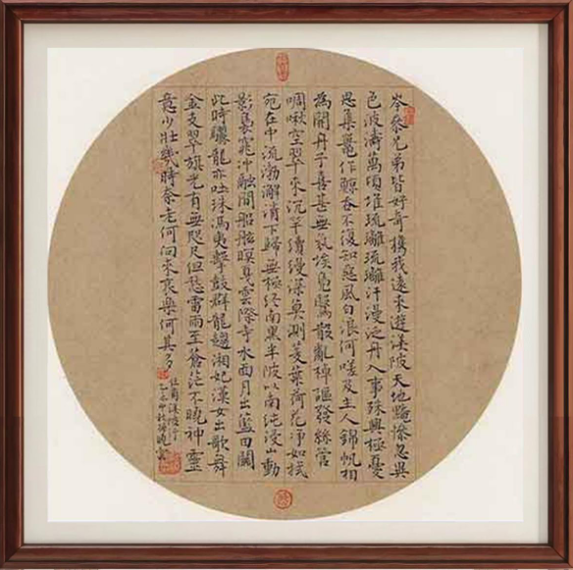 岑參兄弟皆好奇攜我遠來遊渼陂天地黤慘忽異
色波濤萬頃堆琉璃琉璃汗漫泛舟入事殊興極憂
思集鼉作鯨吞不復知惡風白浪何嗟及主人錦帆相
為開舟子喜甚無氛埃鳧鷖散亂棹謳發絲管
啁啾空翠來沉竿續縵深莫測菱葉荷花淨如拭
宛在中流渤澥清下歸無極終南黑半陂以南純浸山動
影裊窕沖融間船舷暝戛雲際寺水面月出藍田關
此時驪龍亦吐珠馮夷擊鼓群龍趨湘妃漢女出歌舞
金支翠旗光有無咫尺但愁雷雨至蒼茫不曉神靈
意少壯幾時奈老何向來哀樂何其多
杜甫渼陂行